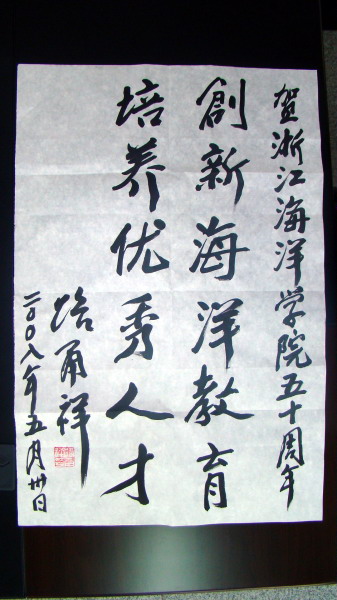 贺浙江海洋学院五十周年
創新海洋教育
培养优秀人才
路甬祥
二〇〇八年五月卅日